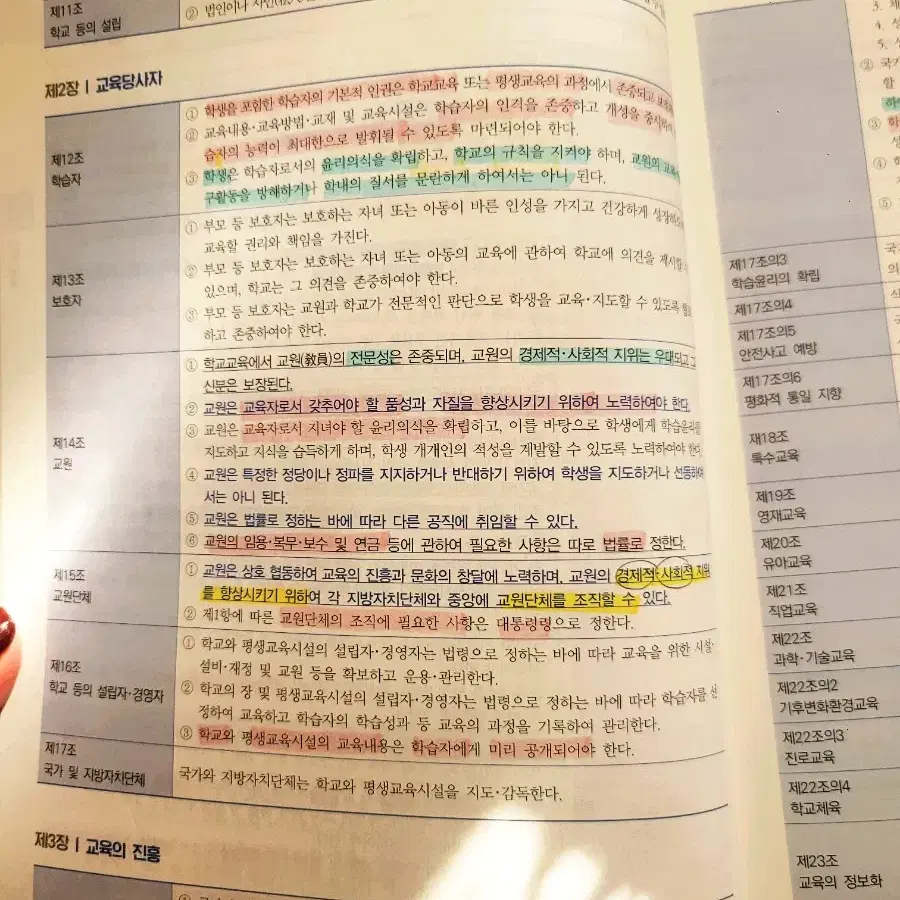 제11조
학교 등의 설립
② 법인이나 사인(
제2장 | 교육당사자
제12조
학습자
① 학생을 포함한 학습자의 기본적 인권은 학교교육 또는 평생교육의 과정에서 존중되고 보호
② 교육내용·교육방법·교재 및 교육시설은 학습자의 인격을 존중하고 개성을 중시하
습자의 능력이 최대한으로 발휘될 수 있도록 마련되어야 한다.
③ 학생은 학습자로서의 윤리의식을 확립하고, 학교의 규칙을 지켜야 하며, 교원의 교육
구활동을 방해하거나 학내의 질서를 문란하게 하여서는 아니 된다.
제13조
보호자
① 부모 등 보호자는 보호하는 자녀 또는 아동이 바른 인성을 가지고 건강하게 성장하도록
교육할 권리와 책임을 가진다.
② 부모 등 보호자는 보호하는 자녀 또는 아동의 교육에 관하여 학교에 의견을 제시할
있으며, 학교는 그 의견을 존중하여야 한다.
③ 부모 등 보호자는 교원과 학교가 전문적인 판단으로 학생을 교육·지도할 수 있도록
하고 존중하여야 한다.
제14조
교원
① 학교교육에서 교원(敎員)의 전문성은 존중되며, 교원의 경제적·사회적 지위는 우대되고 그
신분은 보장된다.
② 교원은 교육자로서 갖추어야 할 품성과 자질을 향상시키기 위하여 노력하여야 한다.
③ 교원은 교육자로서 지녀야 할 윤리의식을 확립하고, 이를 바탕으로 학생에게 학습윤리를
지도하고 지식을 습득하게 하며, 학생 개개인의 적성을 계발할 수 있도록 노력하여야 한다.
④ 교원은 특정한 정당이나 정파를 지지하거나 반대하기 위하여 학생을 지도하거나 선동하여
서는 아니 된다.
⑤ 교원은 법률로 정하는 바에 따라 다른 공직에 취임할 수 있다.
⑥ 교원의 임용·복무·보수 및 연금 등에 관하여 필요한 사항은 따로 법률로 정한다.
제15조
교원단체
① 교원은 상호 협동하여 교육의 진흥과 문화의 창달에 노력하며, 교원의 경제적·사회적 지위
를 향상시키기 위하여 각 지방자치단체와 중앙에 교원단체를 조직할 수 있다.
② 제1항에 따른 교원단체의 조직에 필요한 사항은 대통령령으로 정한다.
제16조
학교 등의 설립자·경영자
① 학교와 평생교육시설의 설립자·경영자는 법령으로 정하는 바에 따라 교육을 위한 시설·
설비·재정 및 교원 등을 확보하고 운용·관리한다.
② 학교의 장 및 평생교육시설의 설립자·경영자는 법령으로 정하는 바에 따라 학습자를 선
정하여 교육하고 학습자의 학습성과 등 교육의 과정을 기록하여 관리한다.
③ 학교와 평생교육시설의 교육내용은 학습자에게 미리 공개되어야 한다.
제17조
국가 및 지방자치단체
국가와 지방자치단체는 학교와 평생교육시설을 지도·감독한다.
제3장 | 교육의 진흥
제17조의3
학습윤리의 확립
제17조의4
제17조의5
안전사고 예방
제17조의6
평화적 통일 지향
제18조
특수교육
제19조
영재교육
제20조
유아교육
제21조
직업교육
제22조
과학·기술교육
제22조의2
기후변화환경교육
제22조의3
진로교육
제22조의4
학교체육
제23조
교육의 정보화